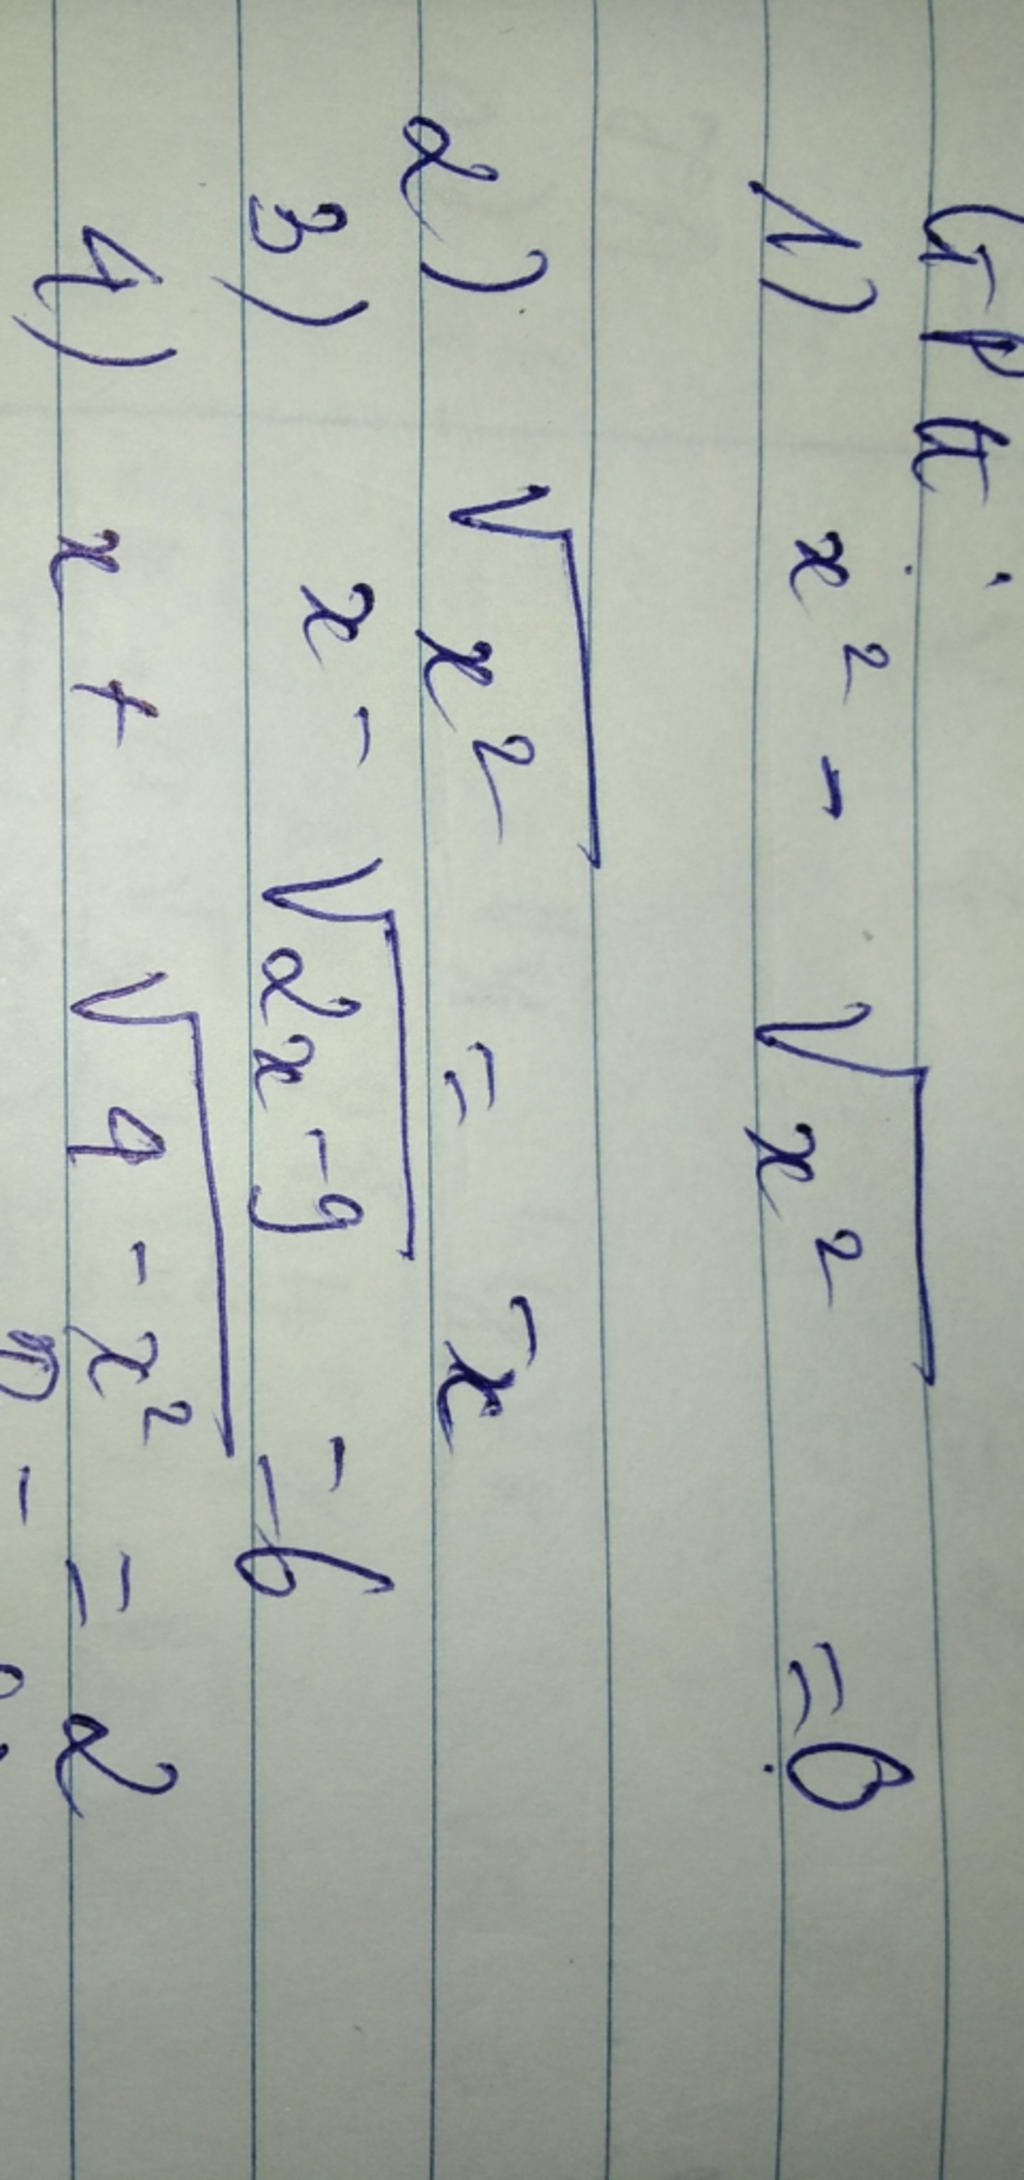 GPt:
1) x² - √x² = 0
2) √x² = -x
3) x - √2x-9 = 6
4) x + √4-x² = 2